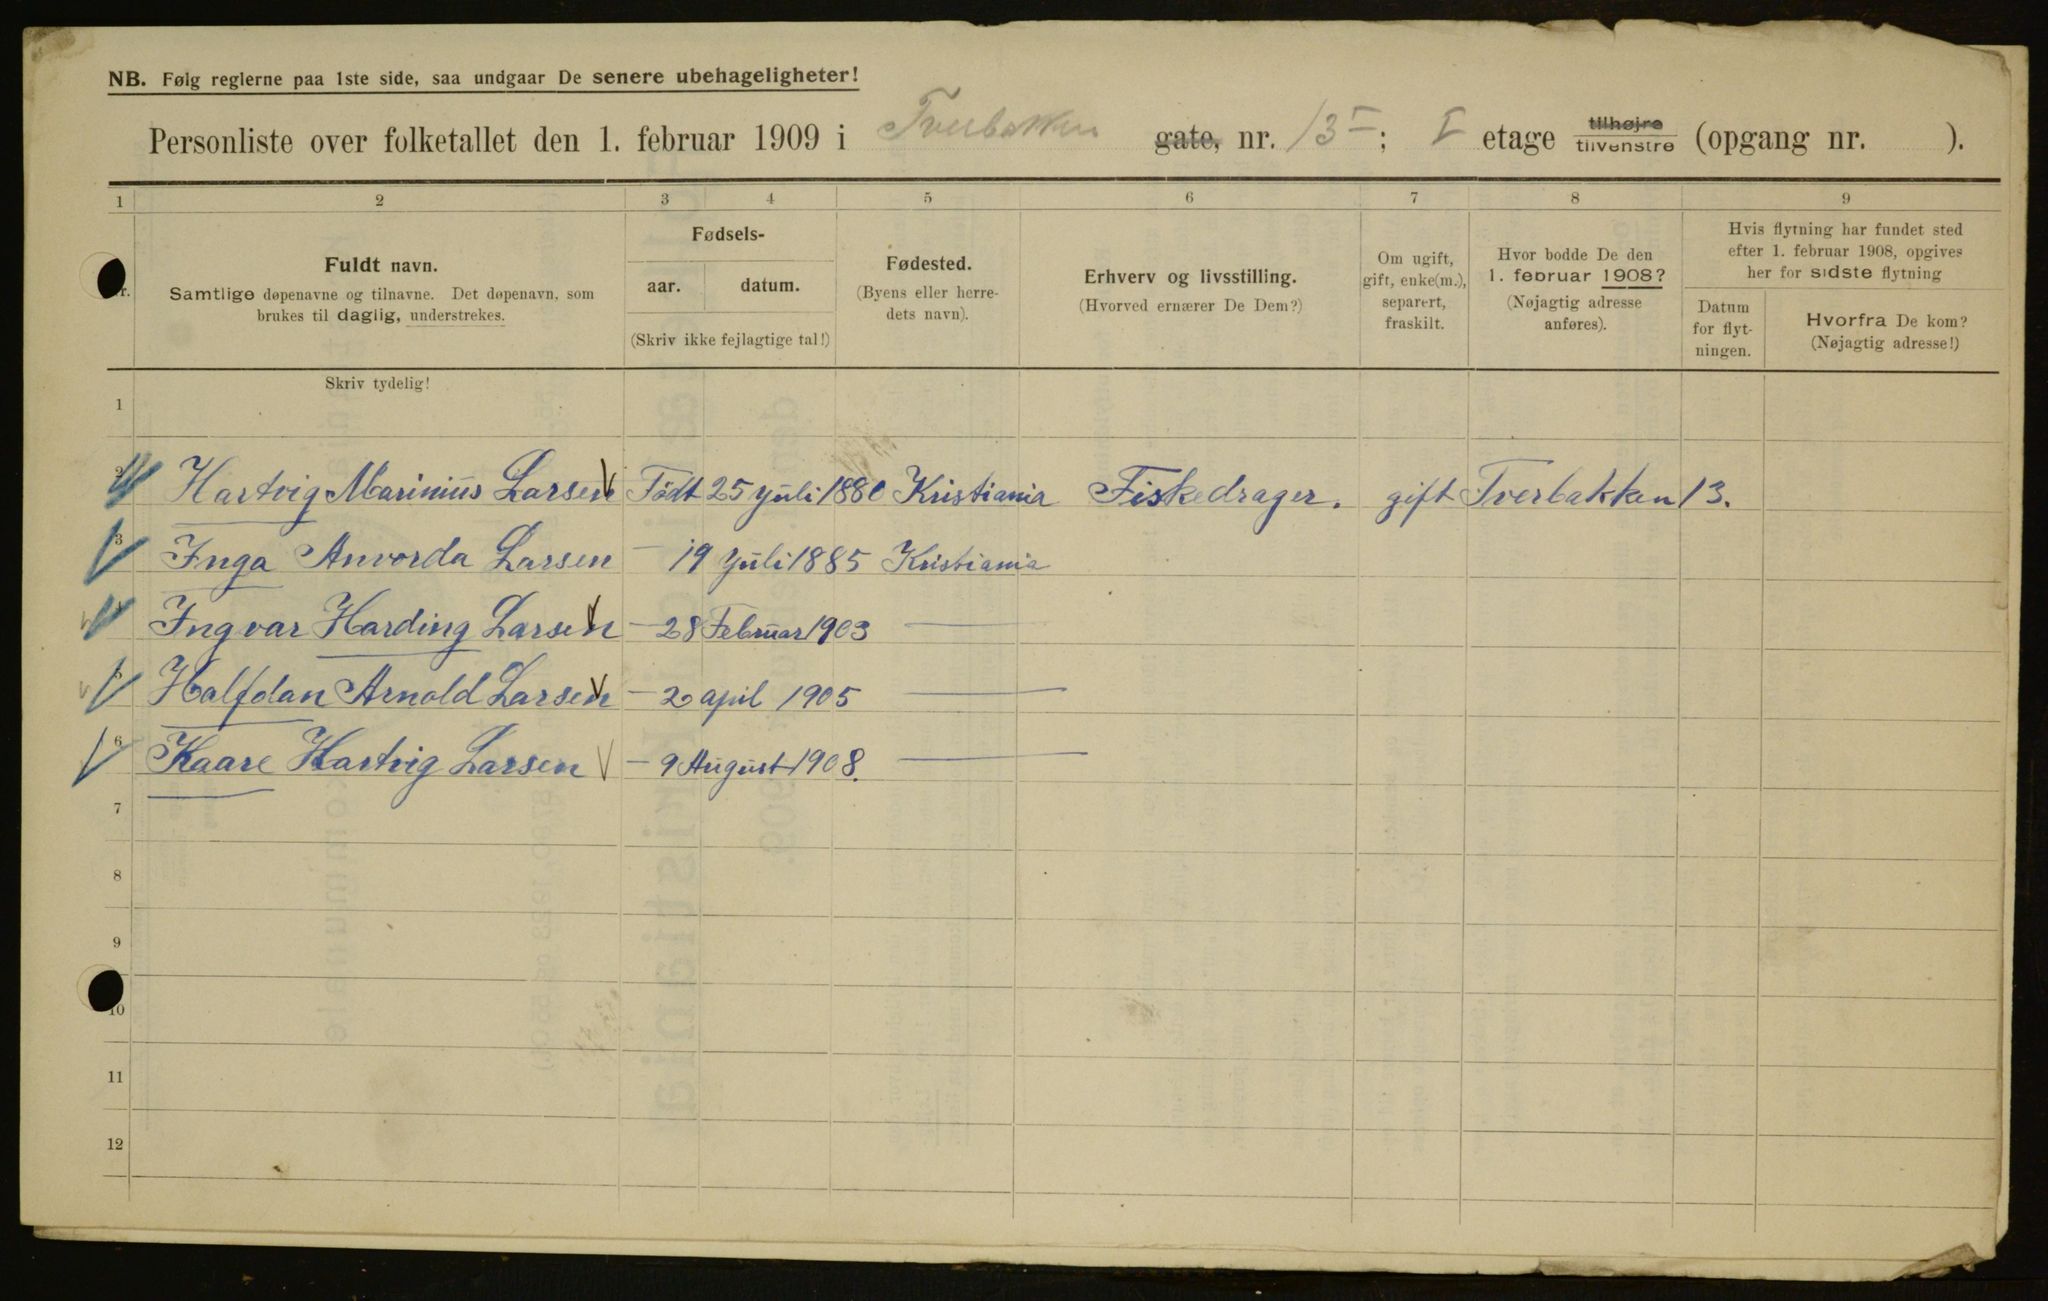 NB. Følg reglerne paa 1ste side, saa undgaar De senere ubehageligheter!
Personliste over folketallet den 1. februar 1909 i Tverbakken gate, nr. 13 I; I etage tilhøjre tilvenstre (opgang nr. ).
1 2 3 4 5 6 7 8 9
Fuldt navn.
Samtlige døpenavne og tilnavne. Det døpenavn, som
brukes til daglig, understrekes.
Fødsels-
aar. datum.
(Skriv ikke fejlagtige tal!)
Fødested.
(Byens eller herre-
dets navn).
Erhverv og livsstilling.
(Hvorved ernærer De Dem?)
Om ugift,
gift, enke(m.),
separert,
fraskilt.
Hvor bodde De den
1. februar 1908?
(Nøjagtig adresse
anføres).
Hvis flytning har fundet sted
efter 1. februar 1908, opgives
her for sidste flytning
Datum
for flyt-
ningen.
Hvorfra De kom?
(Nøjagtig adresse!)
Skriv tydelig!
1
2 Hartvig Marinius Larsen Födt 25 Juli 1880 Kristiania Fiskedrager. gift Tverbakken 13.
3 Inga Anvorda Larsen — 19 Juli 1885 Kristiania
Ingvar Harding Larsen — 28 Februar 1903 —
5 Halfdan Arnold Larsen — 2 april 1905 —
6 Kaare Hartvig Larsen — 9 August 1908. —
7
8
9
10
11
12